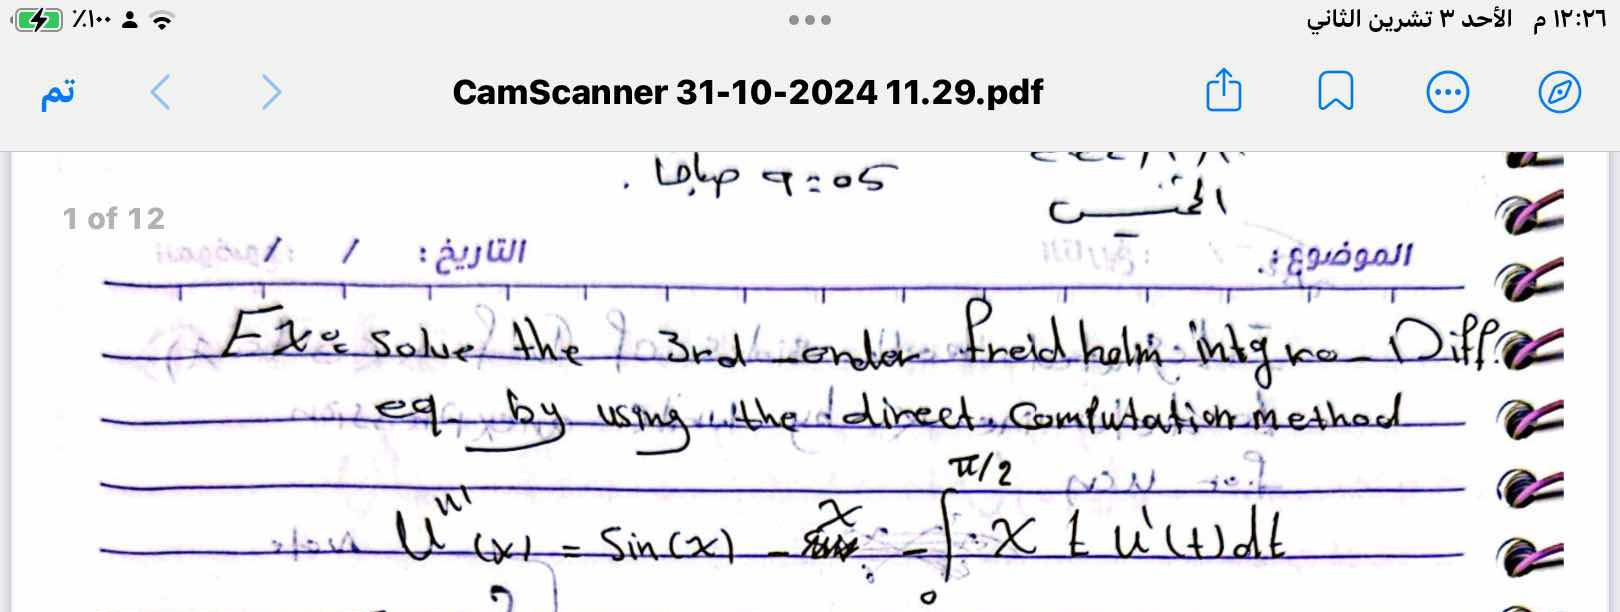 ٪١٠٠ ١٢:٢٦ م الأحد ٣ تشرين الثاني
تم CamScanner 31-10-2024 11.29.pdf
9:05 صباحا.
الخميس
1 of 12
الموضوع: التاريخ: / /
Ex: solve the 3rd order freidholm intgro-Diff.
eq. by using the direct Computation method
u'''(x) = sin(x) - x - ∫₀^{π/2} x t u'(t) dt